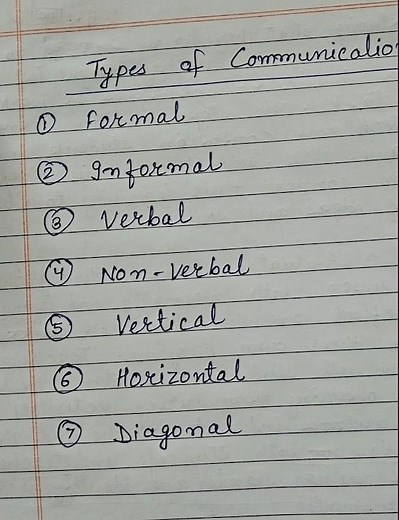 Types of Communicatio
① Formal
② Informal
③ Verbal
④ Non-Verbal
⑤ Vertical
⑥ Horizontal
⑦ Diagonal